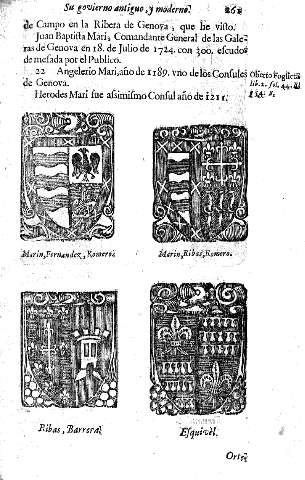 Su govierno antiguo, y moderno. 261
de Campo en la Ribera de Genova, que he visto.
Juan Baptista Mari, Comandante General de las Gale-
ras de Genova en 18. de Julio de 1724. con 300. escudos
de mesada por el Publico.
22 Angelerio Mari, año de 1189. vno de los Consules
de Genova.
Oberto Foglieta
lib. 2. fol. 44.
Herodes Mari fue assimismo Consul año de 1211.
Marin, Fernandez, Romero.
Marin, Ribas, Romero.
Ribas, Barrera.
Esquivèl.